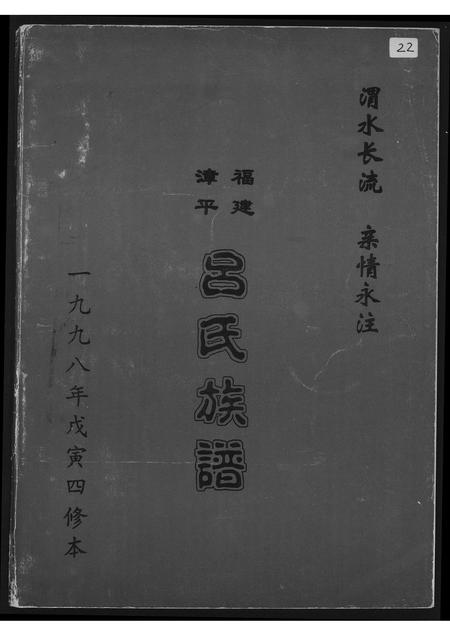 22
渭水长流 亲情永注
福建
漳平
呂氏族譜
一九九八年戊寅四修本